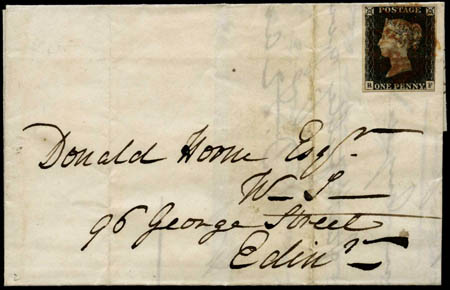 POSTAGE
ONE PENNY
Donald Horne Esqr.
W. S
96 George Street
Edinr